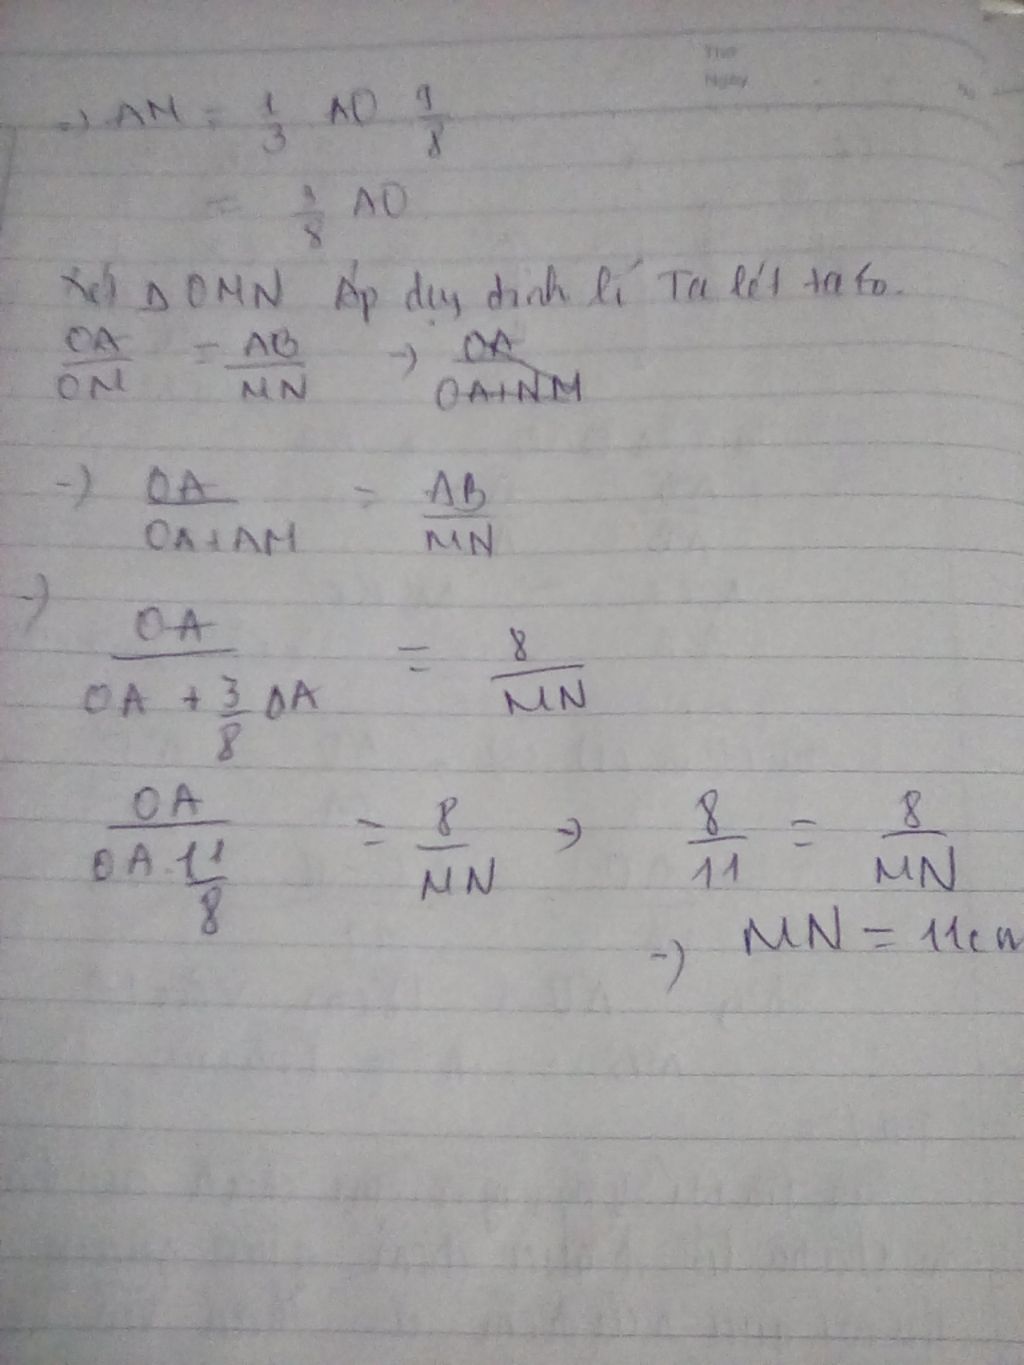 Thứ
Ngày
No
=> AM = 1/3 AO 9/8
= 3/8 AO
Xét Δ OMN Áp dụng định lí Ta lét ta có.
OA/OM = AB/MN -> OA/OA+NM
-> OA/OA+AM = AB/MN
-> OA/OA + 3/8 OA = 8/MN
OA/OA.11/8 = 8/MN -> 8/11 = 8/MN
-> MN = 11cm